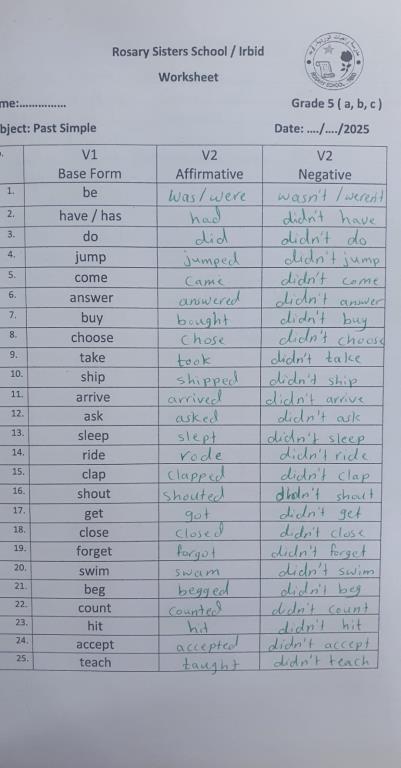 Rosary Sisters School / Irbid
Worksheet
me:............... Grade 5 ( a, b, c )
bject: Past Simple Date: ..../..../2025
V1 V2 V2
Base Form Affirmative Negative
1. be was/were wasn't /weren't
2. have / has had didn't have
3. do did didn't do
4. jump jumped didn't jump
5. come came didn't come
6. answer answered didn't answer
7. buy bought didn't buy
8. choose chose didn't choose
9. take took didn't take
10. ship shipped didn't ship
11. arrive arrived didn't arrive
12. ask asked didn't ask
13. sleep slept didn't sleep
14. ride rode didn't ride
15. clap clapped didn't clap
16. shout shouted didn't shout
17. get got didn't get
18. close closed didn't close
19. forget forgot didn't forget
20. swim swam didn't swim
21. beg begged didn't beg
22. count counted didn't count
23. hit hit didn't hit
24. accept accepted didn't accept
25. teach taught didn't teach